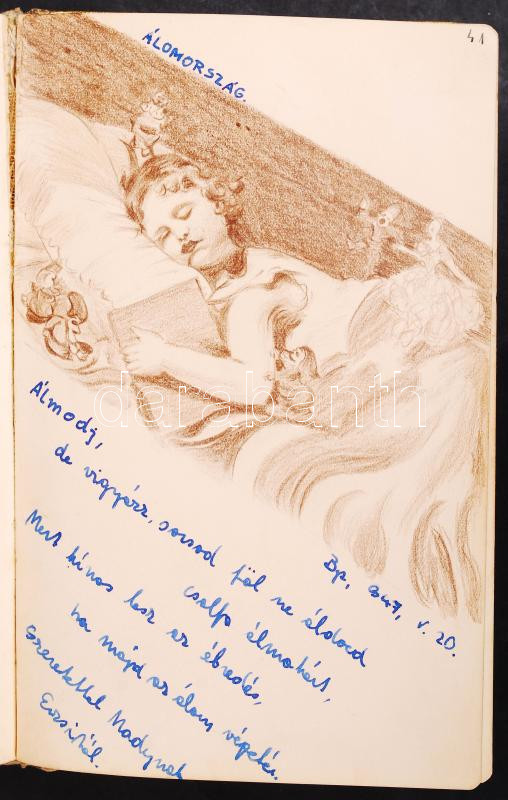 41
ÁLOMORSZÁG.
Álmodj,
de vigyázz, sorsod föl ne áldozd
csalfa álmokért,
Mert kínos lesz az ébredés,
ha majd az álom végetér.
Szeretettel Madynak
Erzsitől.
Bp, 947, V. 20.
darabanth